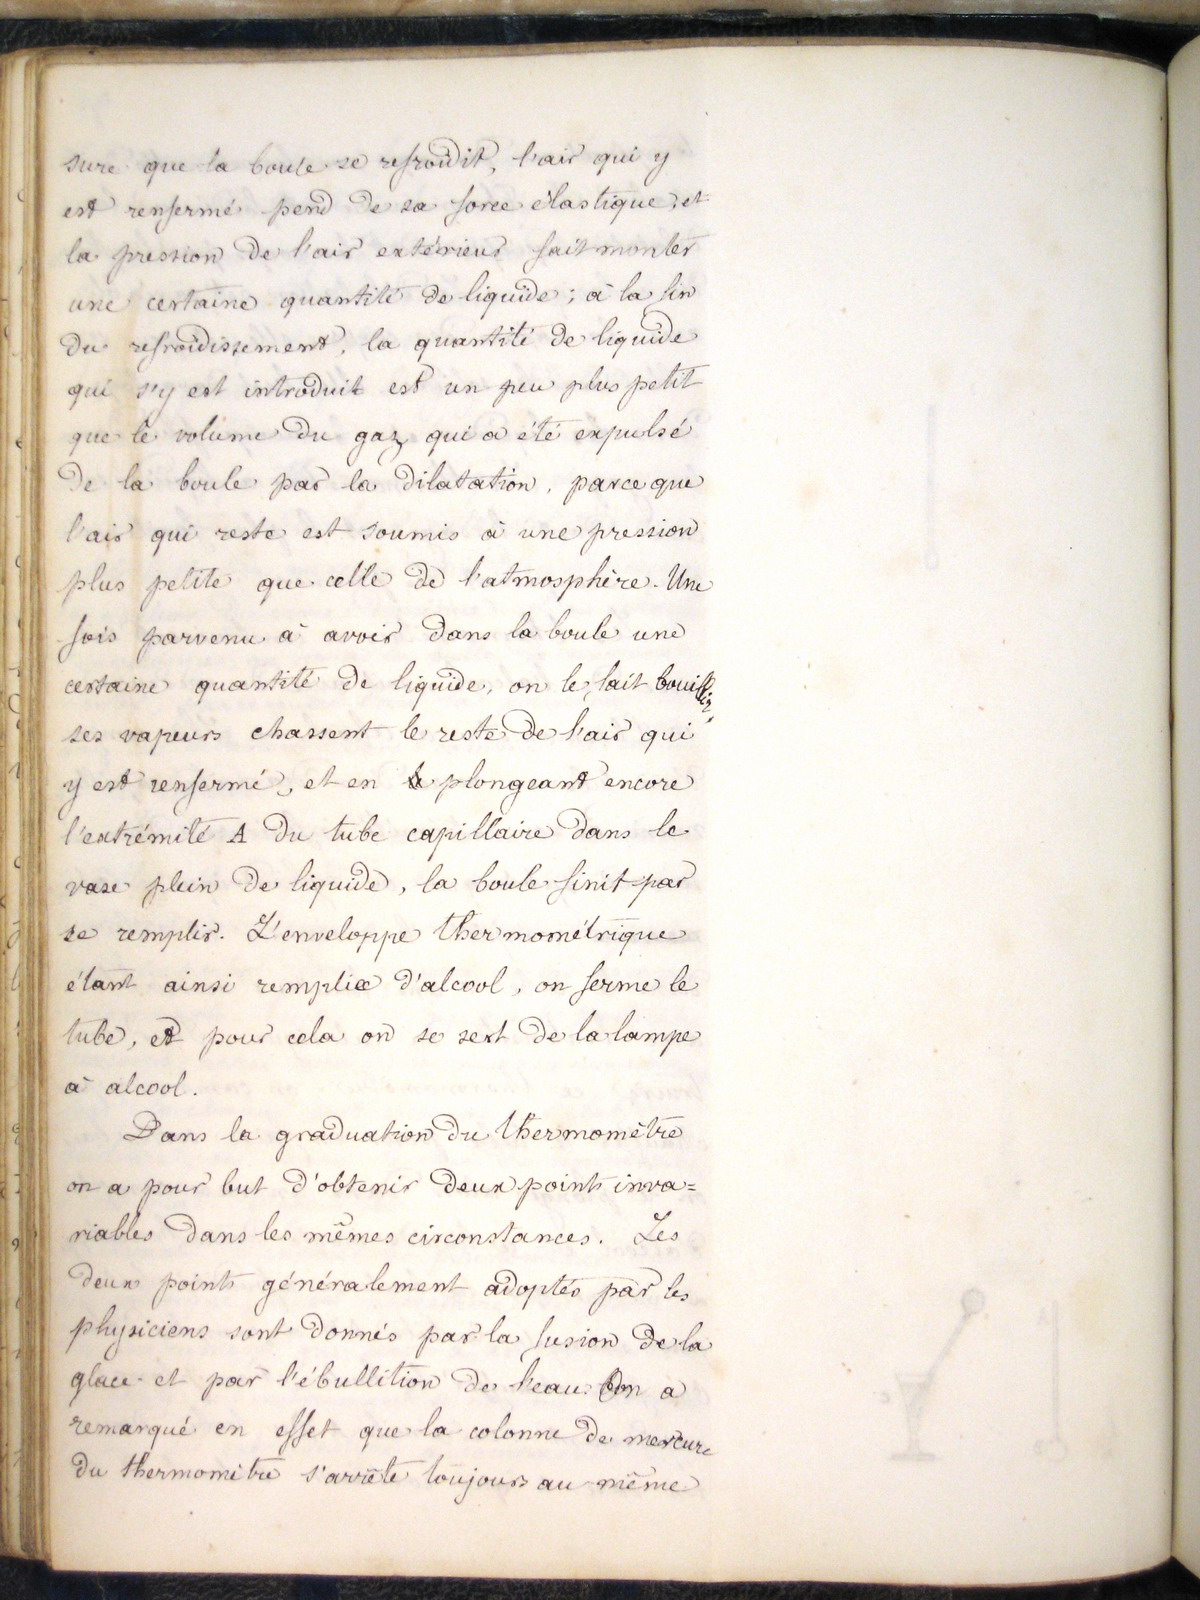 sure que la boule se refroidit, l'air qui y
est renfermé perd de sa force élastique, et
la pression de l'air extérieur fait monter
une certaine quantité de liquide ; à la fin
du refroidissement, la quantité de liquide
qui s'y est introduit est un peu plus petit
que le volume du gaz qui a été expulsé
de la boule par la dilatation, parce que
l'air qui reste est soumis à une pression
plus petite que celle de l'atmosphère. Une
fois parvenu à avoir dans la boule une
certaine quantité de liquide, on le fait bouillir,
ses vapeurs chassent le reste de l'air qui
y est renfermé, et en plongeant encore
l'extrémité A du tube capillaire dans le
vase plein de liquide, la boule finit par
se remplir. L'enveloppe thermométrique
étant ainsi remplie d'alcool, on ferme le
tube, et pour cela on se sert de la lampe
à alcool.
Dans la graduation du thermomètre
on a pour but d'obtenir deux points inva=
riables dans les mêmes circonstances. Les
deux points généralement adoptés par les
physiciens sont donnés par la fusion de la
glace et par l'ébullition de l'eau. On a
remarqué en effet que la colonne de mercure
du thermomètre s'arrête toujours au même